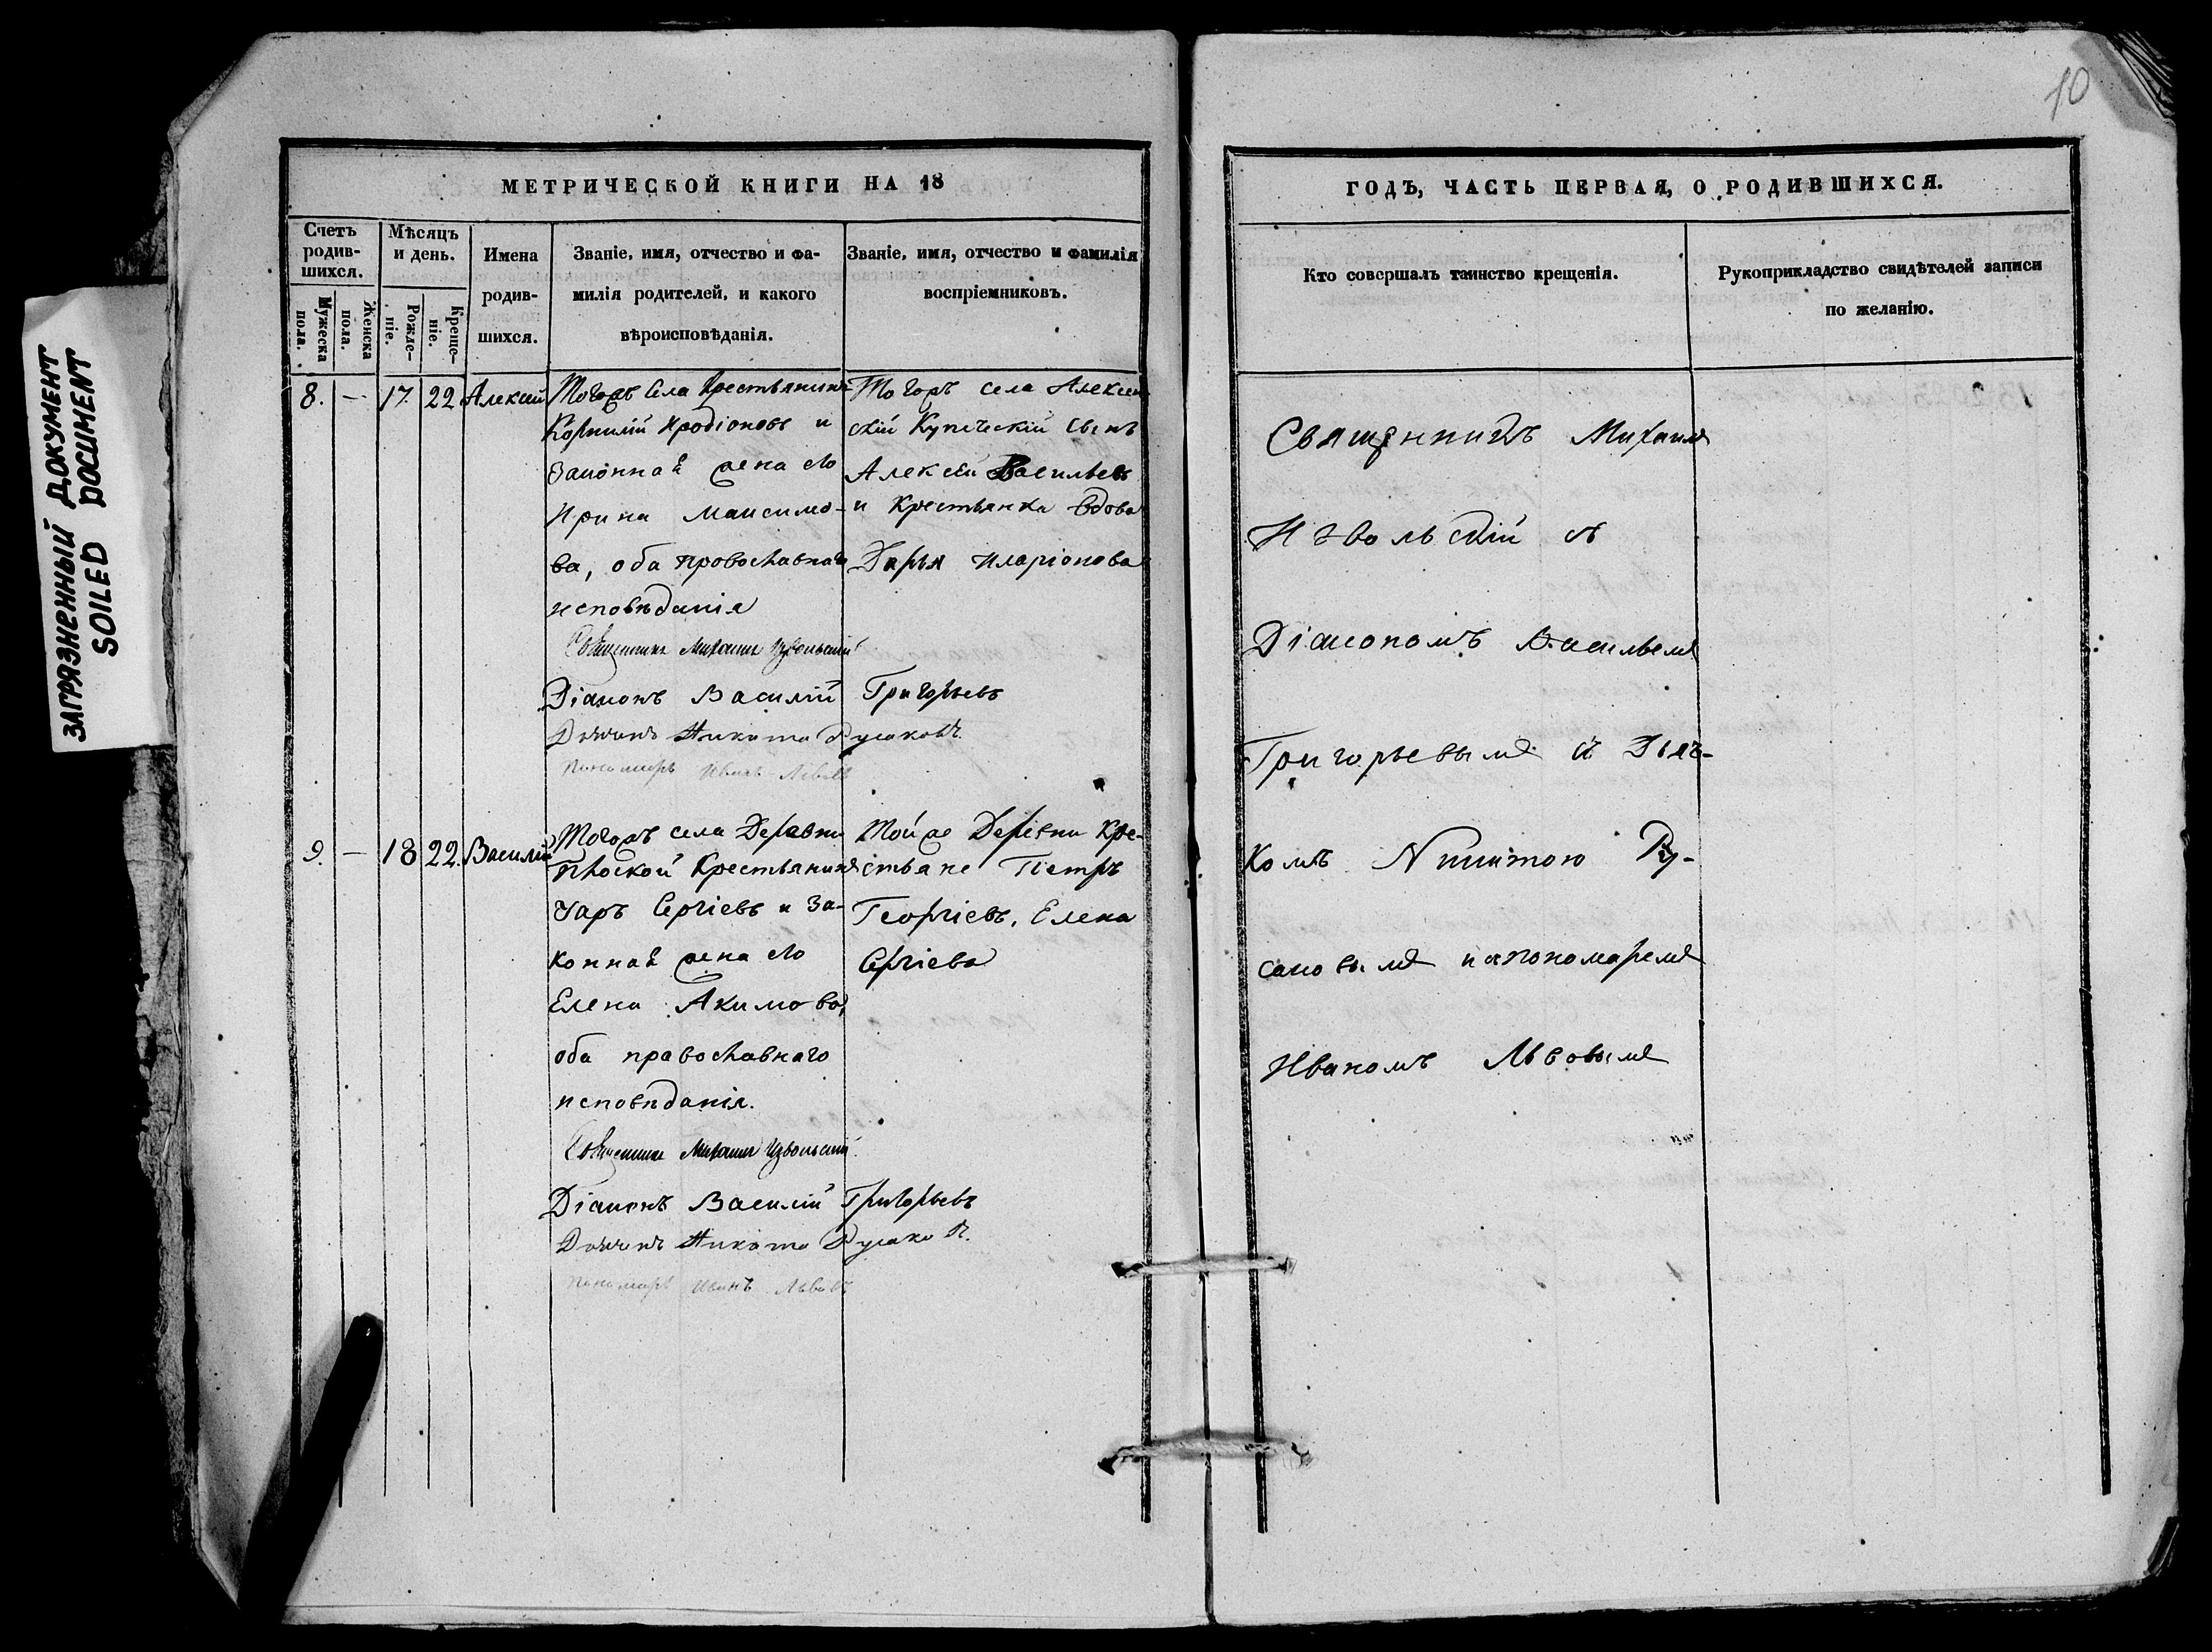 ЗАГРЯЗНЕННЫЙ ДОКУМЕНТ
SOILED DOCUMENT
10
МЕТРИЧЕСКОЙ КНИГИ НА 18
Счетъ родив-шихся.
Мужеска пола.
Женска пола.
Мѣсяцъ и день.
Рожде-ніе.
Креще-ніе.
Имена
родив-
шихся.
Званіе, имя, отчество и фа-
милія родителей, и какого
вѣроисповѣданія.
Званіе, имя, отчество и фамилія
воспріемниковъ.
8. — 17. 22 Алексій
Тогожъ села Крестьянинъ
Корнилій Иродіоновъ и
Законная жена его
Ирина Максимо-
ва, оба православнаго
исповѣданія
Священникъ Михаилъ Извольскій
Діаконъ Василій Григорьевъ
Дьячокъ Никита Русаковъ.
Пономарь Иванъ Львовъ
Тогожъ села Алексин
скій Купеческій сынъ
Алексѣй Васильевъ
и Крестьянка Вдова
Дарья Иларіонова
9. — 18 22. Василій
Тогожъ села Деревни
Плоской Крестьянинъ
Сергіевъ и За-
конная жена его
Елена Акимова,
оба православнаго
исповѣданія.
Священникъ Михаилъ Извольскій.
Діаконъ Василій Григорьевъ
Дьячокъ Никита Русаковъ.
Пономарь Иванъ Львовъ
Той же Деревни Кре-
стьяне Петръ
Георгіевъ, Елена
Сергіева
ГОДЪ, ЧАСТЬ ПЕРВАЯ, О РОДИВШИХСЯ.
Кто совершалъ таинство крещенія.
Рукоприкладство свидѣтелей записи
по желанію.
Священникъ Михаилъ
Извольскій съ
Діакономъ Васильемъ
Григорьевымъ и Дьяч-
комъ Никитою Ру-
саковымъ и пономаремъ
Иваномъ Львовымъ